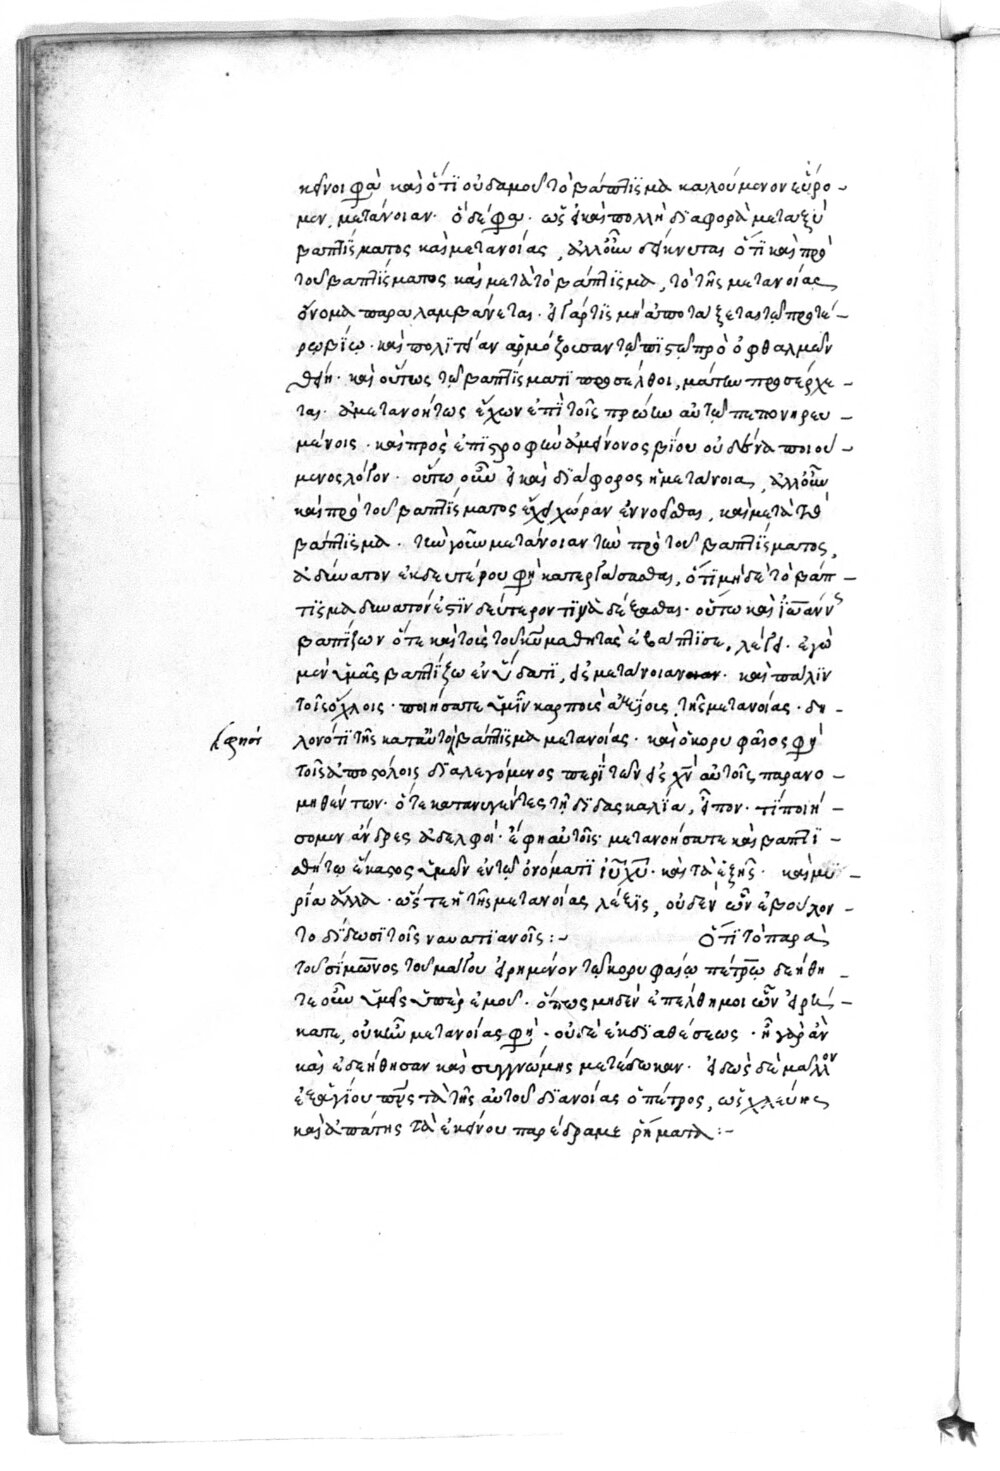 κεῖνοι φασὶ καὶ ὅτι οὐδαμοῦ τὸ βάπτισμα καλούμενον εὕρο-
μεν μετάνοιαν. ὁ δέ φησιν. ὡς εἰ καὶ πολλὴ διαφορὰ μεταξὺ
βαπτίσματος καὶ μετανοίας, ἀλλ' οὖν δείκνυται ὅτι καὶ πρὸ
τοῦ βαπτίσματος καὶ μετὰ τὸ βάπτισμα, τὸ τῆς μετανοίας
ὄνομα παραλαμβάνεται. εἰ γάρ τις μὴ ἀποτάξεται τῷ προτέ-
ρῳ βίῳ. καὶ πολιτείαν ἁρμόζουσαν τῷ πιστῷ πρὸ ὀφθαλμῶν
θείη. καὶ οὕτως τῷ βαπτίσματι προσέλθοι, μάτην προσέρχε-
ται. ἀμετανοήτως ἔχων ἐπὶ τοῖς πρώην αὐτῷ πεπονηρευ-
μένοις. καὶ πρὸς ἐπιστροφὴν ἀμείνονος βίου οὐδένα ποιού-
μενος λόγον. οὕτω οὖν εἰ καὶ διάφορος ἡ μετάνοια, ἀλλ' οὖν
καὶ πρὸ τοῦ βαπτίσματος ἔχει χώραν ἐννοεῖσθαι, καὶ μετὰ τὸ
βάπτισμα. τὴν γοῦν μετάνοιαν τὴν πρὸ τοῦ βαπτίσματος,
ἀδύνατον ἐκ δευτέρου φησὶ κατεργάσασθαι, ὅτι μηδὲ τὸ βάπ-
τισμα δυνατόν ἐστιν δεύτερον τινὰ δέξασθαι. οὕτω καὶ ἰωάννης
βαπτίζων ὅτε καὶ τοὺς τοῦ κυ μαθητὰς ἐβάπτισε, λέγει. ἐγὼ
μὲν ὑμᾶς βαπτίζω ἐν ὕδατι, εἰς μετάνοιαν. καὶ πάλιν
τοῖς ὄχλοις. ποιήσατε ὑμῖν καρποὺς ἀξίους τῆς μετανοίας. δη-
λονότι τῆς κατ' αὐτὸ βάπτισμα μετανοίας. καὶ ὁ κορυφαῖος φησὶ
τοῖς ἀποστόλοις διαλεγόμενος περὶ τῶν εἰς χν αὐτοῖς παρανο-
μηθέντων. ὅτε κατανυγέντες τῇ διδασκαλίᾳ, εἶπον. τί ποιή-
σομεν ἄνδρες ἀδελφοί. ἔφη αὐτοῖς. μετανοήσατε καὶ βαπτι-
σθήτω ἕκαστος ὑμῶν ἐν τῷ ὀνόματι ιυ χυ. καὶ τὰ ἑξῆς. καὶ μυ-
ρία ἄλλα. ὥστε ἡ τῆς μετανοίας λέξις, οὐδὲν ὧν ἐβούλον-
το δίδωσι τοῖς ναυατιανοῖς:- Ὅτι τὸ παρὰ
τοῦ σίμωνος τοῦ μάγου εἰρημένον τῷ κορυφαίῳ πέτρῳ δεήθη-
τε οὖν ὑμεῖς ὑπὲρ ἐμοῦ. ὅπως μηδὲν ἐπέλθῃ μοι ὧν εἰρή-
κατε, οὐκ ἦν μετανοίας φησὶ. οὐδὲ ἐκ διαθέσεως. ἦ γὰρ ἂν
καὶ ἐδεήθησαν καὶ συγγνώμης μετέδωκαν. εἰδὼς δὲ μᾶλλον
ἐξ ἁγίου πνς τὰ τῆς αὐτοῦ διανοίας ὁ πέτρος, ὡς χλεύης
καὶ ἀπάτης τὰ ἐκείνου παρέδραμε ῥήματα:-